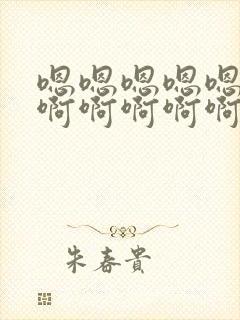 嗯嗯嗯嗯嗯
啊啊啊啊啊
朱春貴